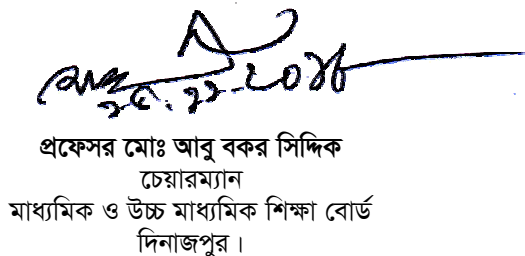 ২৫.১১.২০১৮
প্রফেসর মোঃ আবু বকর সিদ্দিক
চেয়ারম্যান
মাধ্যমিক ও উচ্চ মাধ্যমিক শিক্ষা বোর্ড
দিনাজপুর।